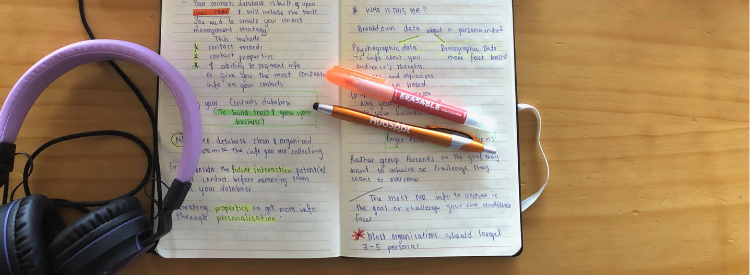 - Your contacts database is built up upon
your CRM & will include the tools
you need to create your contact
management strategy.
This include
* contact records
* contact properties
* & ability to segment info
to give you the most
info on your contacts
your Contacts database
(To build trust & grow your
business)
database clean & organized
the info you are collecting
the future interaction potential
contact before removing them
your database
properties to get more info
through personalisation.
* WHO IS THIS
Breakdown data about a persona into?
Psychographic data
Demographic Data
is info about your
more fact based
audience's thoughts,
and opinions
based
ERASABLE
HubSpot
Rather group personas on the goal they
want to achieve or challenge they
want to overcome
The most info to uncover is
the goal or challenge your core audience
faces
* Most organisations should target
3-5 personas